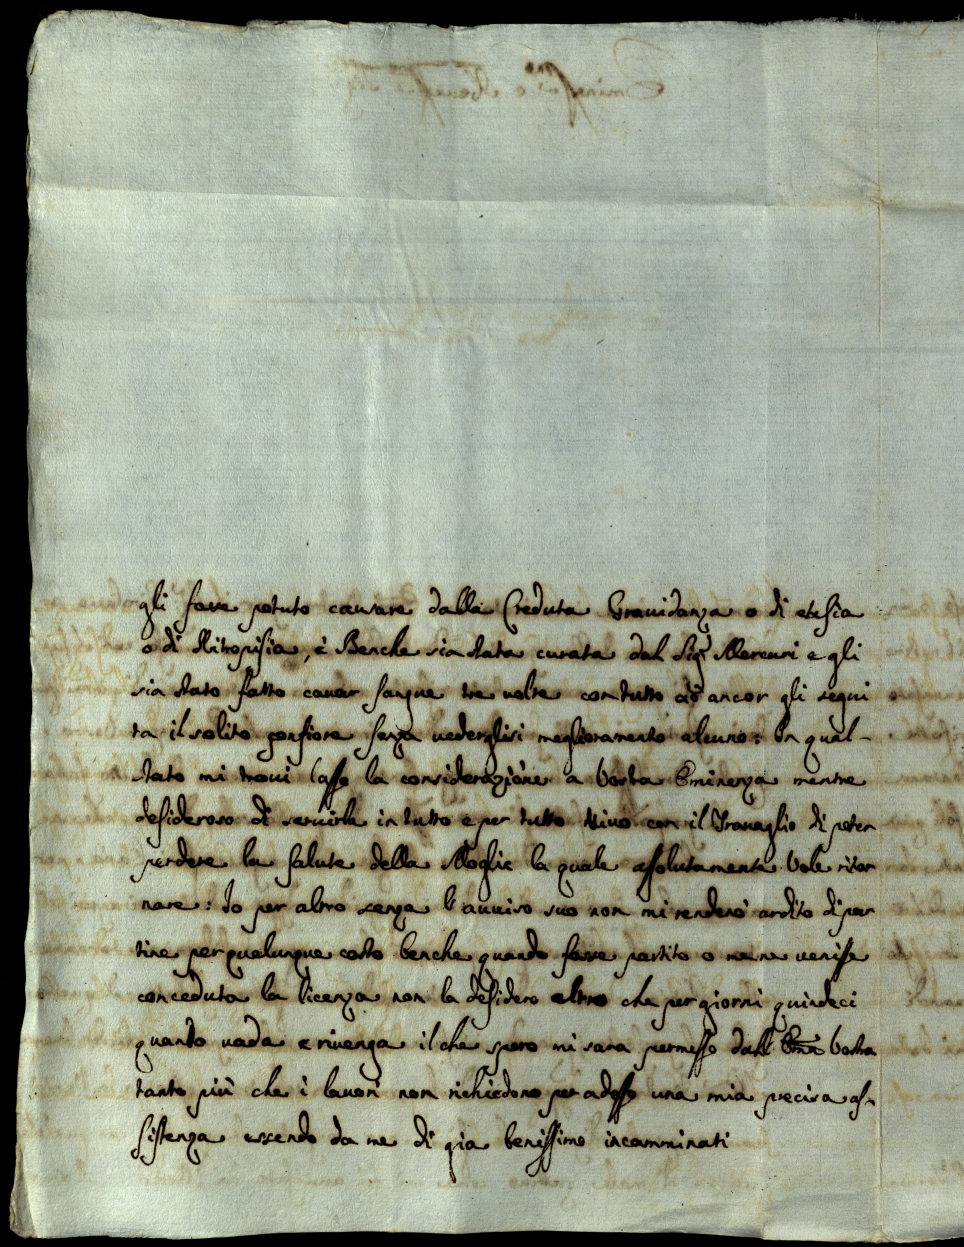 gli fosse potuto causare dalla Creduta Gravidanza o di etesia
o di Ritropisia, e Benche sia stata curata dal Sig.r Mercuri e gli
sia stato fatto cavar sangue tre volte con tutto ciò ancor gli segui
ta il solito gonfiore senza vederglisi meglioramento alcuno: In qual-
stato mi trovi lasso la considerazione a Vostra Eminenza mentre
desideroso di servirla in tutto e per tutto vivo con il Travaglio di poter
perdere la salute della Moglie la quale assolutamente Vole ritor
nare: Io per altro senza l'avviso suo non mi renderò ardito di par
tire per qualunque costo benche quando fosse partito o me ne venisse
conceduta la licenza non la desidero altro che per giorni quindeci
quando vada e rivenga il che spero mi sara permesso dall Em.a Vostra
tanto più che i lavori non richiedono per adesso una mia precisa as-
sistenza essendo da me di gia benissimo incamminati